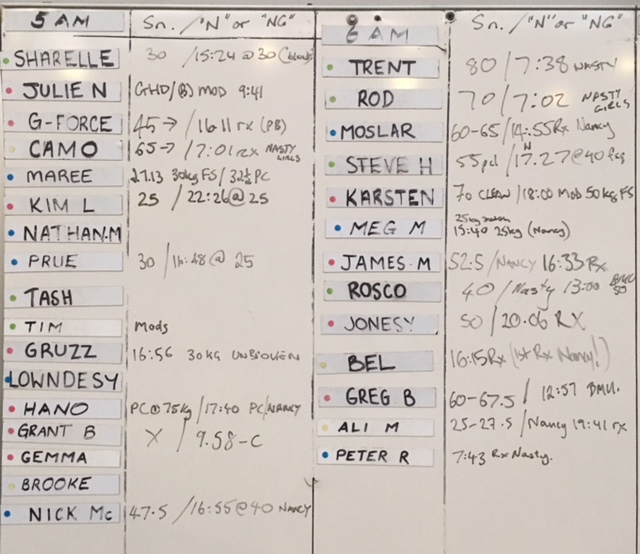 5 AM Sn. / "N" or "NG"
SHARELLE 30 /15:24 @ 30
JULIE N GHD/(B) MOD 9:41
G-FORCE 45→ / 16:11 rx (PB)
CAMO 65→ / 7:01 rx NASTY GIRLS
MAREE 27.13 30kg FS/ PC
KIM L 25 / 22:26 @ 25
NATHAN.M
PRUE 30 / 16:48 @ 25
TASH
TIM Mods
GRUZZ 16:56 30KG UNBROKEN
LOWNDESY
HANO PC@75kg /17:40 PC/NANCY
GRANT B X / 9.58-C
GEMMA
BROOKE
NICK Mc 47.5 /16:55@40 NANCY
6 AM Sn. / "N" or "NG"
TRENT 80 / 7:38 NASTY
ROD 70 / 7:02 NASTY GIRLS
MOSLAR 60-65 / 14:55 Rx Nancy
STEVE H 55pd / 17.27@40
N
KARSTEN 70 CLEAN / 18:00 MOD 50kg FS
MEG M 25kg
15:40 25kg (Nancy)
JAMES.M 52.5 / NANCY 16:33 Rx
ROSCO 40 / Nasty 13:00
JONESY 50 / 20.06 RX
BEL 16:15 Rx (1st Rx Nancy!)
GREG B 60-67.5 / 12:57 BMU.
ALI M 25-27.5 / Nancy 19:41 rx
PETER R 7:43 Rx Nasty.